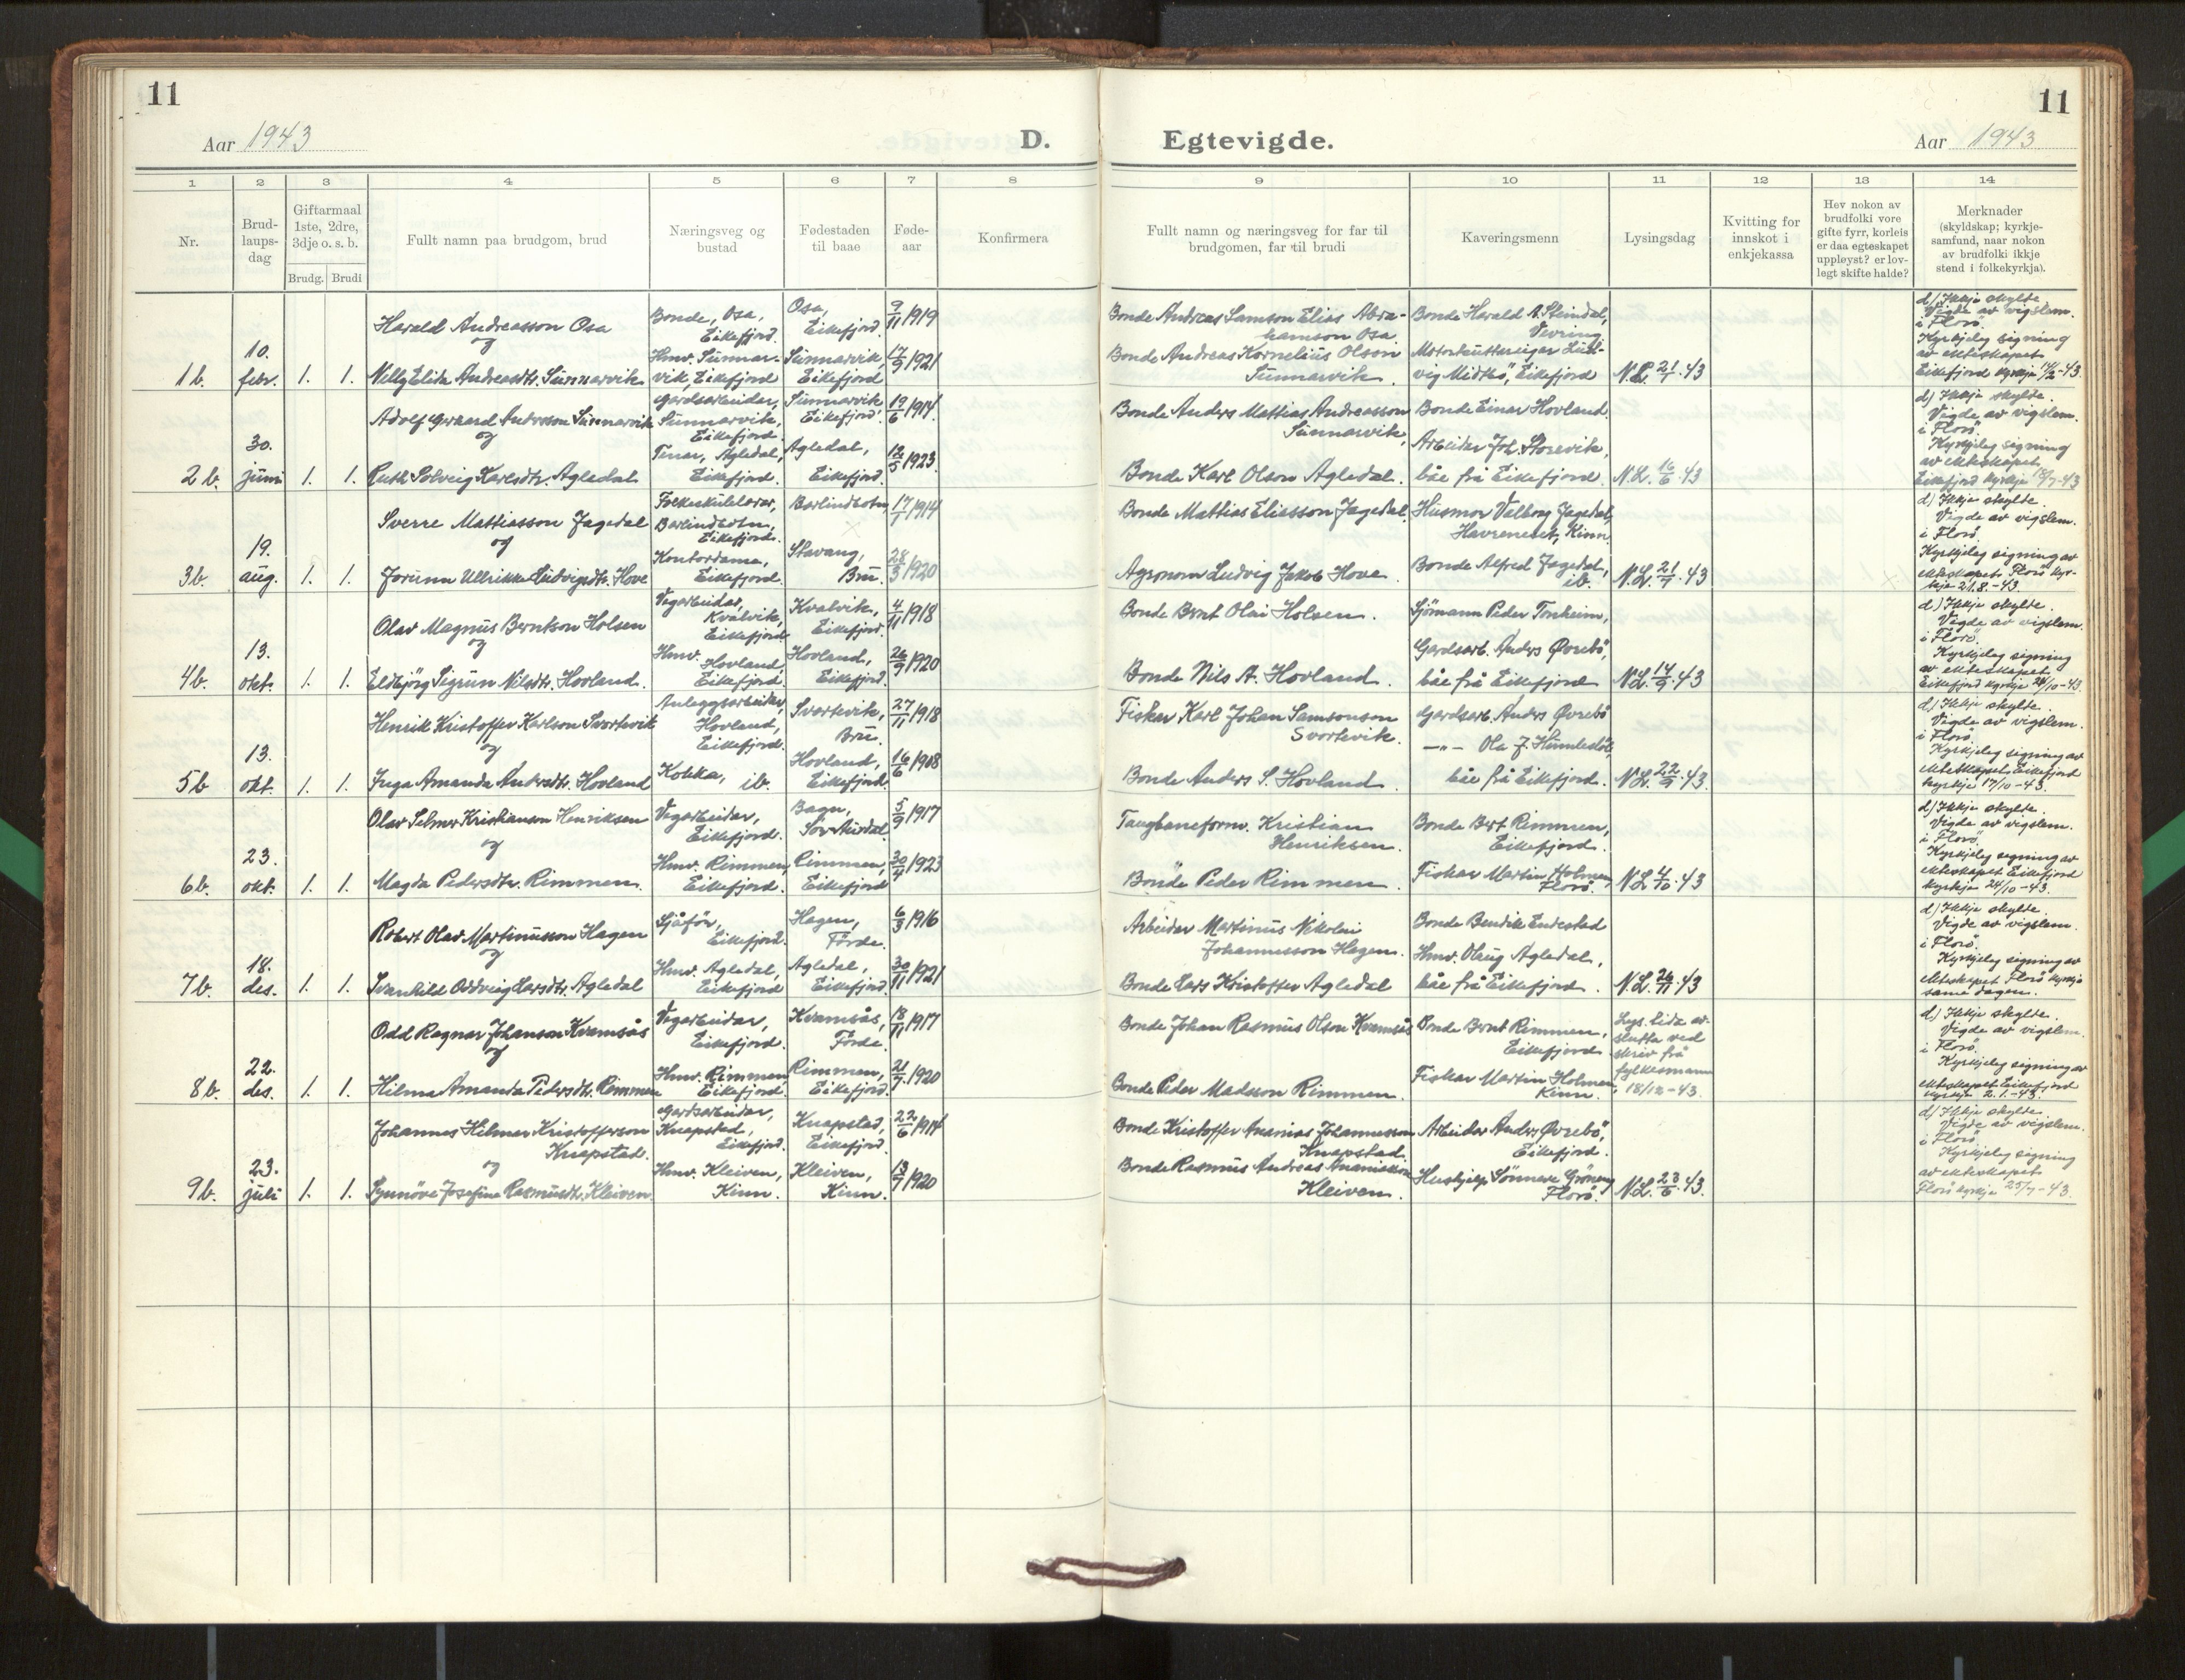 11
Aar 1943
D.
1
2
3
4
5
6
7
8
Nr.
Brud-
laups-
dag
Giftarmaal
1ste, 2dre,
3dje o. s. b.
Brudg.
Brudi
Fullt namn paa brudgom, brud
Næringsveg og
bustad
Fødestaden
til baae
Føde-
aar
Konfirmera
1 b.
10.
febr.
1.
1.
Harald Andreasson Osa
og
Nelly Elida Andreasdtr. Sunnarvik
Bonde, Osa,
Eikefjord.
Hmv. Sunnar-
vik, Eikefjord
Osa,
Eikefjord.
Sunnarvik,
Eikefjord
9/11 1919
17/9 1921
2 b.
30.
juni
1.
1.
Adolf Gerhard Andersson Sunnarvik
og
Ruth Solveig Karlsdtr. Agledal
Gardsarbeidar,
Sunnarvik,
Eikefjord.
Tenar, Agledal,
Eikefjord.
Sunnarvik
Eikefjord.
Agledal,
Eikefjord.
19/6 1914
12/5 1923.
3 b.
19.
aug.
1.
1.
Sverre Mattiasson Fagedal
og
Jorunn Ullrikke Ludvigsdtr. Hove
Folkeskulelærar,
Barlindbotn,
Eikefjord.
Kontordama,
Eikefjord.
Barlindbotn,
Stavang,
Bru.
17/7 1914
28/3 1920
4 b.
13.
okt.
1.
1.
Olav Magnus Berntson Holsen
og
Eldbjörg Sigrun Nilsdtr. Hovland.
Vegarbeidar,
Kvalvik,
Eikefjord
Hmv.
Hovland,
Eikefjord.
Kvalvik,
Eikefjord.
Hovland,
Eikefjord.
4/11 1918
26/9 1920
5 b
13.
okt.
1.
1.
Henrik Kristoffer Karlson Svortevik
og
Inga Amanda Andersdtr. Hovland
Anleggsarbeidar,
Hovland,
Eikefjord.
Kokka, ib.
Svortevik,
Bru.
Hovland,
Eikefjord.
27/11 1918
16/6 1908
6 b.
23.
okt.
1.
1.
Olav Selmer Kristianson Henriksen
og
Magda Pedersdtr. Rimmen.
Vegarbeidar,
Eikefjord.
Hmv. Rimmen,
Eikefjord.
Bagn,
Sör Aurdal
Rimmen,
Eikefjord
5/9 1917
30/4 1923
7 b.
18.
des.
1.
1.
Robert Olav Martinusson Hagen
og
Svanhild Oddveig Larsdtr. Agledal
Sjåför,
Eikefjord.
Hmv. Agledal,
Eikefjord
Hagen,
Förde.
Agledal,
Eikefjord.
6/3 1916
30/11 1921
8 b.
22.
des.
1.
1.
Odd Ragnar Johanson Kvamsås
og
Hilma Amanda Pedersdtr. Rimmen
Vegarbeidar,
Eikefjord.
Hmv. Rimmen
Eikefjord.
Kvamsås,
Förde.
Rimmen,
Eikefjord.
18/11 1917
21/7 1920
9 b.
23.
juli
1.
1.
Johannes Hilmar Kristofferson
Knapstad.
og
Synnöve Josefine Rasmusdtr. Kleiven.
Gardsarbeidar,
Knapstad,
Eikefjord.
Hmv. Kleiven,
Kinn.
Knapstad,
Eikefjord.
Kleiven,
Kinn.
22/6 1914
13/7 1920
11
Egtevigde.
Aar 1943
9
10
11
12
13
14
Fullt namn og næringsveg for far til
brudgomen, far til brudi
Kaveringsmenn
Lysingsdag
Kvitting for
innskot i
enkjekassa
Hev nokon av
brudfolki vore
gifte fyrr, korleis
er daa egteskapet
uppløyst? er lov-
legt skifte halde?
Merknader
(skyldskap; kyrkje-
samfund, naar nokon
av brudfolki ikkje
stend i folkekyrkja).
Bonde Andreas Samson Elias Abra-
hamson Osa
Bonde Andreas Kornelius Olsson
Sunnarvik.
Bonde Harald A. Steindal,
Vevring
Motorkuttareigar Lud-
vig Midtbö, Eikefjord
N.L. 21/1.43
d) Ikkje skylde.
Vigde av vigslem.
i Florö.
Kyrkjeleg signing
av ekteskapet
Eikefjord kyrkje 14/2-43.
Bonde Anders Mattias Andreasson
Sunnarvik,
Bonde Karl Olson Agledal.
Bonde Einar Hovland.
Arbeidar Joh. Storevik,
båe frå Eikefjord.
N.L. 16/6.43
d) Ikkje skylde.
Vigde av vigslem.
i Florö.
Kyrkjeleg signing
av ekteskapet
Eikefjord kyrkje 18/7-43
Bonde Mattias Eliasson Fagedal.
Agronom Ludvig Jakob Hove.
Husmor Valborg Fagedal,
Havreneset, Kinn,
Bonde Alfred Fagedal,
ib.
N.L. 21/7.43
d) Ikkje skylde.
Vigde av vigslem.
i Florö.
Kyrkjeleg signing av
ekteskapet Florö kyr-
kje 21.8.-43.
Bonde Bernt Olai Holsen.
Bonde Nils A. Hovland.
Sjömann Peder Tonheim,
Gardsarb. Anders Övrebö,
båe frå Eikefjord
N.L. 14/9.43
d) Ikkje skylde.
Vigde av vigslem.
i Florö.
Kyrkjeleg signing
av ekteskapet
Eikefjord kyrkje 24/10-43.
Fiskar Karl Johan Samsonson
Svortevik.
Bonde Anders S. Hovland.
Gardsarb. Anders Övrebö
—"— Ola J. Humlestöl,
båe frå Eikefjord.
N.L. 22/9.43
d) Ikkje skylde.
Vigde av vigslem.
i Florö.
Kyrkjeleg signing av
ekteskapet Eikefjord
kyrkje 17/10-43.
Taugbaneform. Kristian
Henriksen.
Bonde Peder Rimmen.
Bonde Bert Rimmen,
Eikefjord.
Fiskar Martin Holmen,
Florö.
N.L. 4/10.43
d) Ikkje skylde.
Vigde av vigslem.
i Florö.
Kyrkjeleg signing av
ekteskapet Eikefjord
kyrkje 24/10-43.
Arbeidar Martinus Nikolai
Johannesson Hagen.
Bonde Lars Kristoffer Agledal
Bonde Bendik Endestad
Hmv. Olaug Agledal,
båe frå Eikefjord.
N.L. 26/11.43
d) Ikkje skylde.
Vigde av vigslem.
i Florö.
Kyrkjeleg signing av
ekteskapet Florö kyrkje
same dagen.
Bonde Johan Rasmus Olson Kvamsås
Bonde Peder Madsson Rimmen.
Bonde Bernt Rimmen,
Eikefjord.
Fiskar Martin Holmen
Kinn.
Lys. tida av-
slutta ved
skriv frå
fylkesmann
18/12-43.
d) Ikkje skylde.
Vigde av vigslem.
i Florö.
Kyrkjeleg signing av
ekteskapet Eikefjord
kyrkje 2.1.-43.
Bonde Kristoffer Ananias Johannesson
Knapstad.
Bonde Rasmus Andreas Ananiasson
Kleiven.
Arbeidar Anders Övrebö,
Eikefjord.
Hushjelp Sönneve Gröneng
Florö.
N.L. 23/6.43.
d) Ikkje skylde.
Vigde av vigslem.
i Florö.
Kyrkjeleg signing
av ekteskapet
Florö kyrkje 25/7-43.